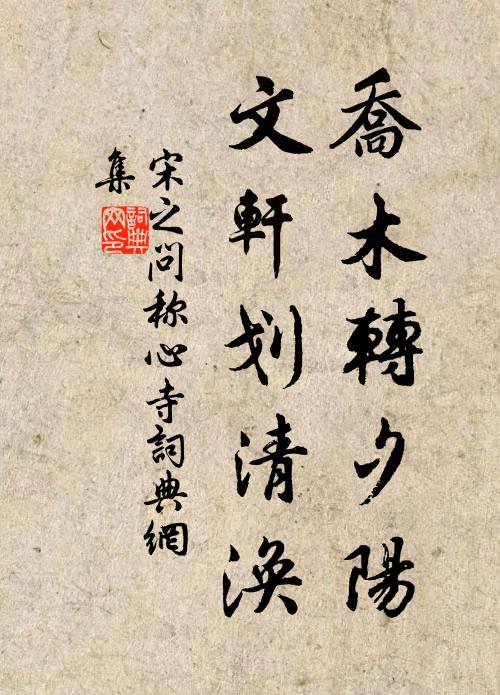 喬木轉夕陽
文軒划清渙
宋之问称心寺詞典網
集
詞典网印